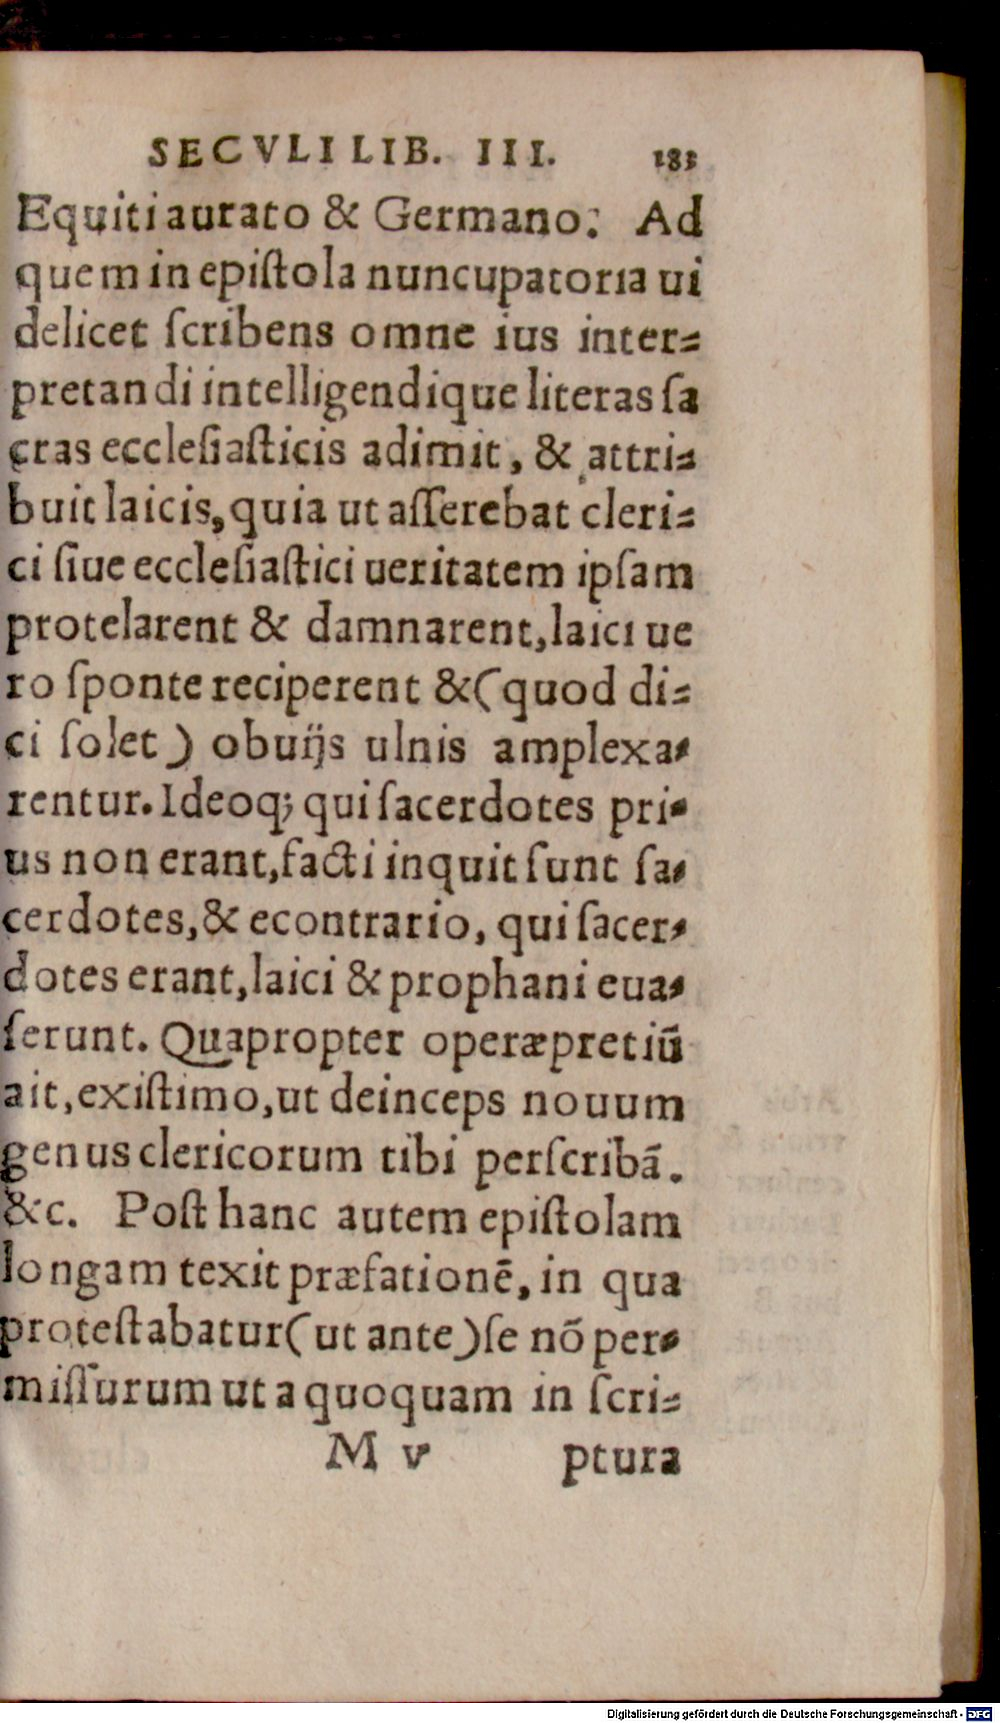 SECVLI LIB. III. 185
Equiti aurato & Germano. Ad
quem in epiſtola nuncupatoria ui
delicet ſcribens omne ius inter⸗
pretandi intelligendique literas ſa
cras eccleſiaſticis adimit, & attri⸗
buit laicis, quia ut aſſerebat cleri⸗
ci ſiue eccleſiaſtici ueritatem ipſam
protelarent & damnarent, laici ue
ro ſponte reciperent &(quod di⸗
ci ſolet) obuijs ulnis amplexa⸗
rentur. Ideoq; qui ſacerdotes pri⸗
us non erant, facti inquit ſunt ſa⸗
cerdotes, & econtrario, qui ſacer⸗
dotes erant, laici & prophani eua⸗
ſerunt. Quapropter operæpretiū
ait, exiſtimo, ut deinceps nouum
genus clericorum tibi perſcribā.
&c. Poſt hanc autem epiſtolam
longam texit præfationē, in qua
proteſtabatur(ut ante)ſe nō per⸗
miſſurum ut a quoquam in ſcri⸗
M v ptura
Digitalisierung gefördert durch die Deutsche Forschungsgemeinschaft - DFG